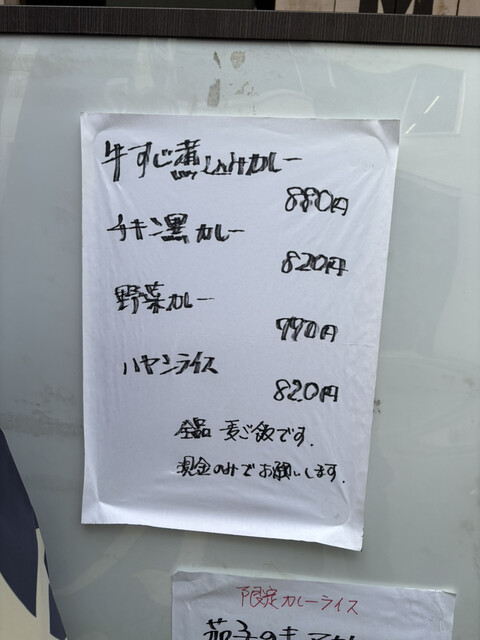 牛すじ煮込みカレー
880円
チキン黒カレー
820円
野菜カレー
990円
ハヤシライス
820円
全品 麦ご飯です.
現金のみでお願いします.
限定カレーライス
茄子のキーマカレー